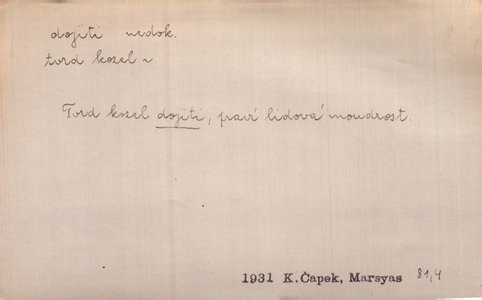 dojiti nedok.
tvrd kozel ~
Tvrd kozel dojiti, praví lidová moudrost.
1931 K.Čapek, Marsyas 81,4